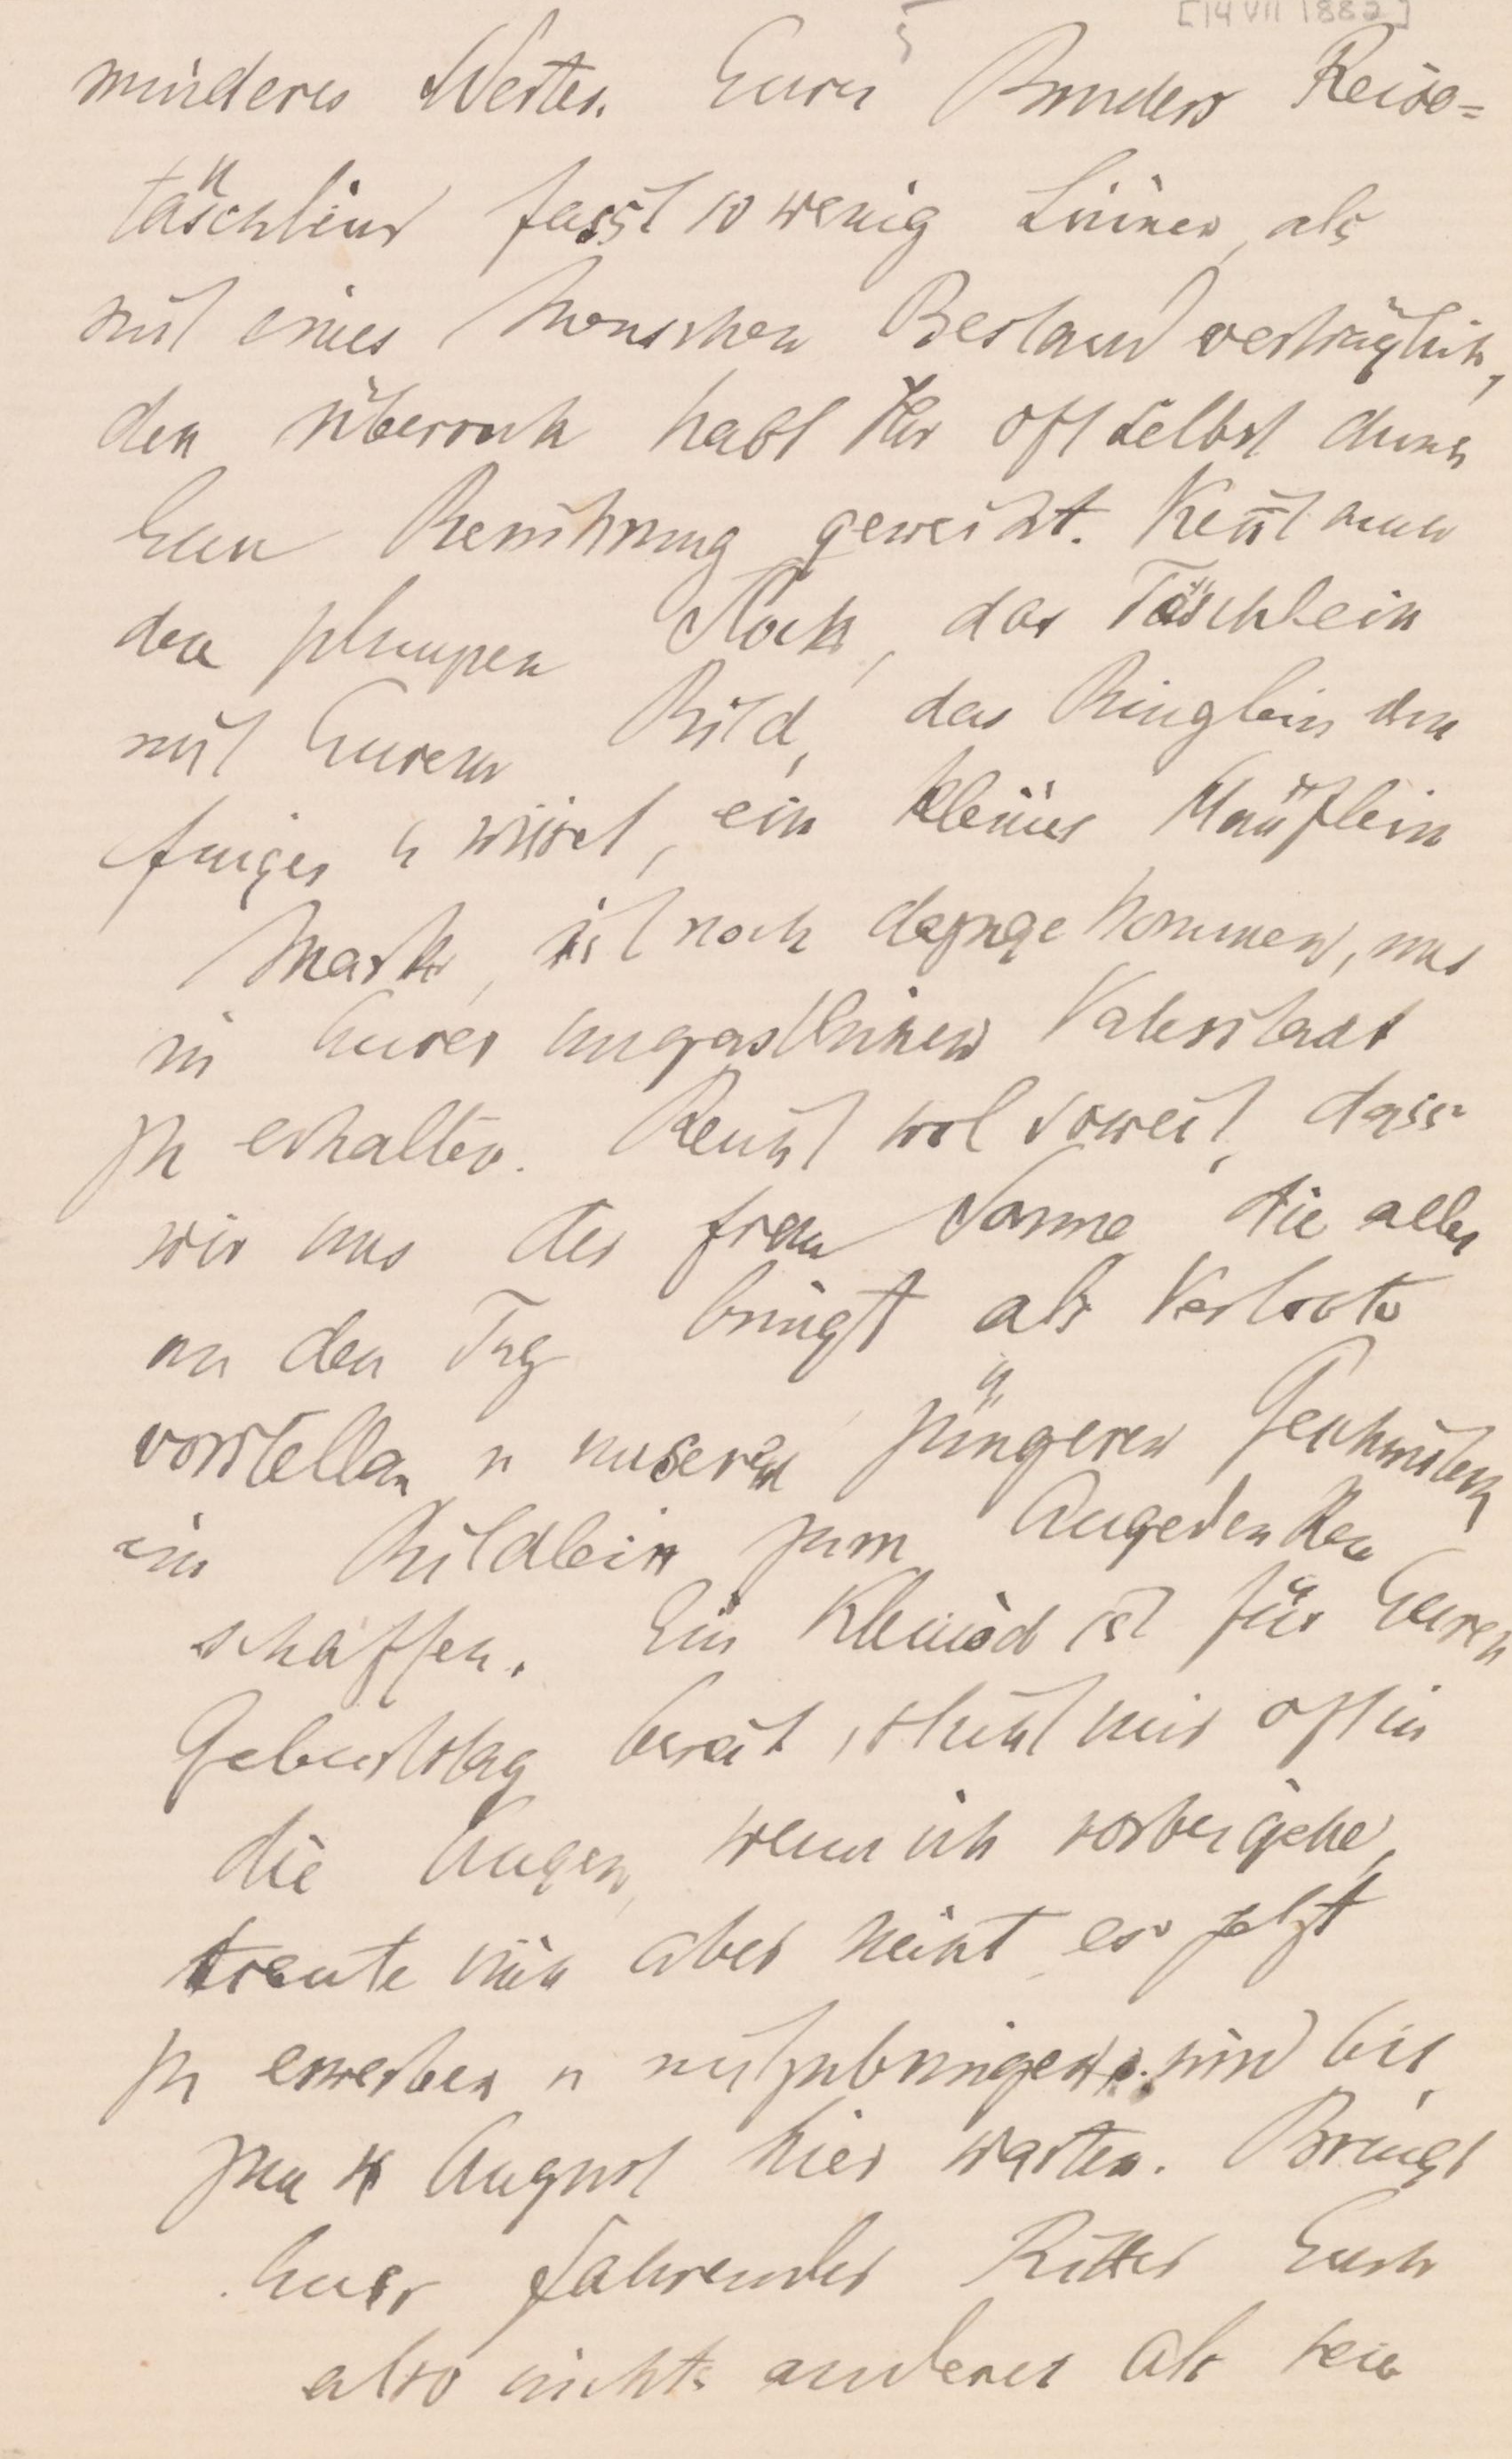 [14 VII 1882]
minderes Wertes. Eures Bruders Reise=
täschlein fasst so wenig Linnen, als
mit eines Menschen Bestand verträglich,
den überrock habt Ihr oft selbst durch
Eure Berührung geweiht. Kennt man
den plumpen Stock, das Täschlein
mit Eurem Bild, das Ringlein den
Finger u wisset, ein kleines Häuflein
Mark, ist noch dazugekommen, uns
in Eurer ungastlichen Vaterstadt
zu erhalten. Reicht wol soweit, dass
wir uns der frau Sonne die alles
an den Tag bringt als Verlobte
vorstellen u unseren jüngeren Geschwistern
ein Bildlein zum Angedenken
schaffen. Ein Kleinod ist für Euren
Geburtstag bereit, sticht mir oft in
die Augen, wenn ich vorbeigehe,
traute mich aber nicht es jetzt
zu erwerben u mitzubringen, wird bis
zum August hier warten. Bringt
Euer fahrender Ritter Euch
also nichts anderes als sein